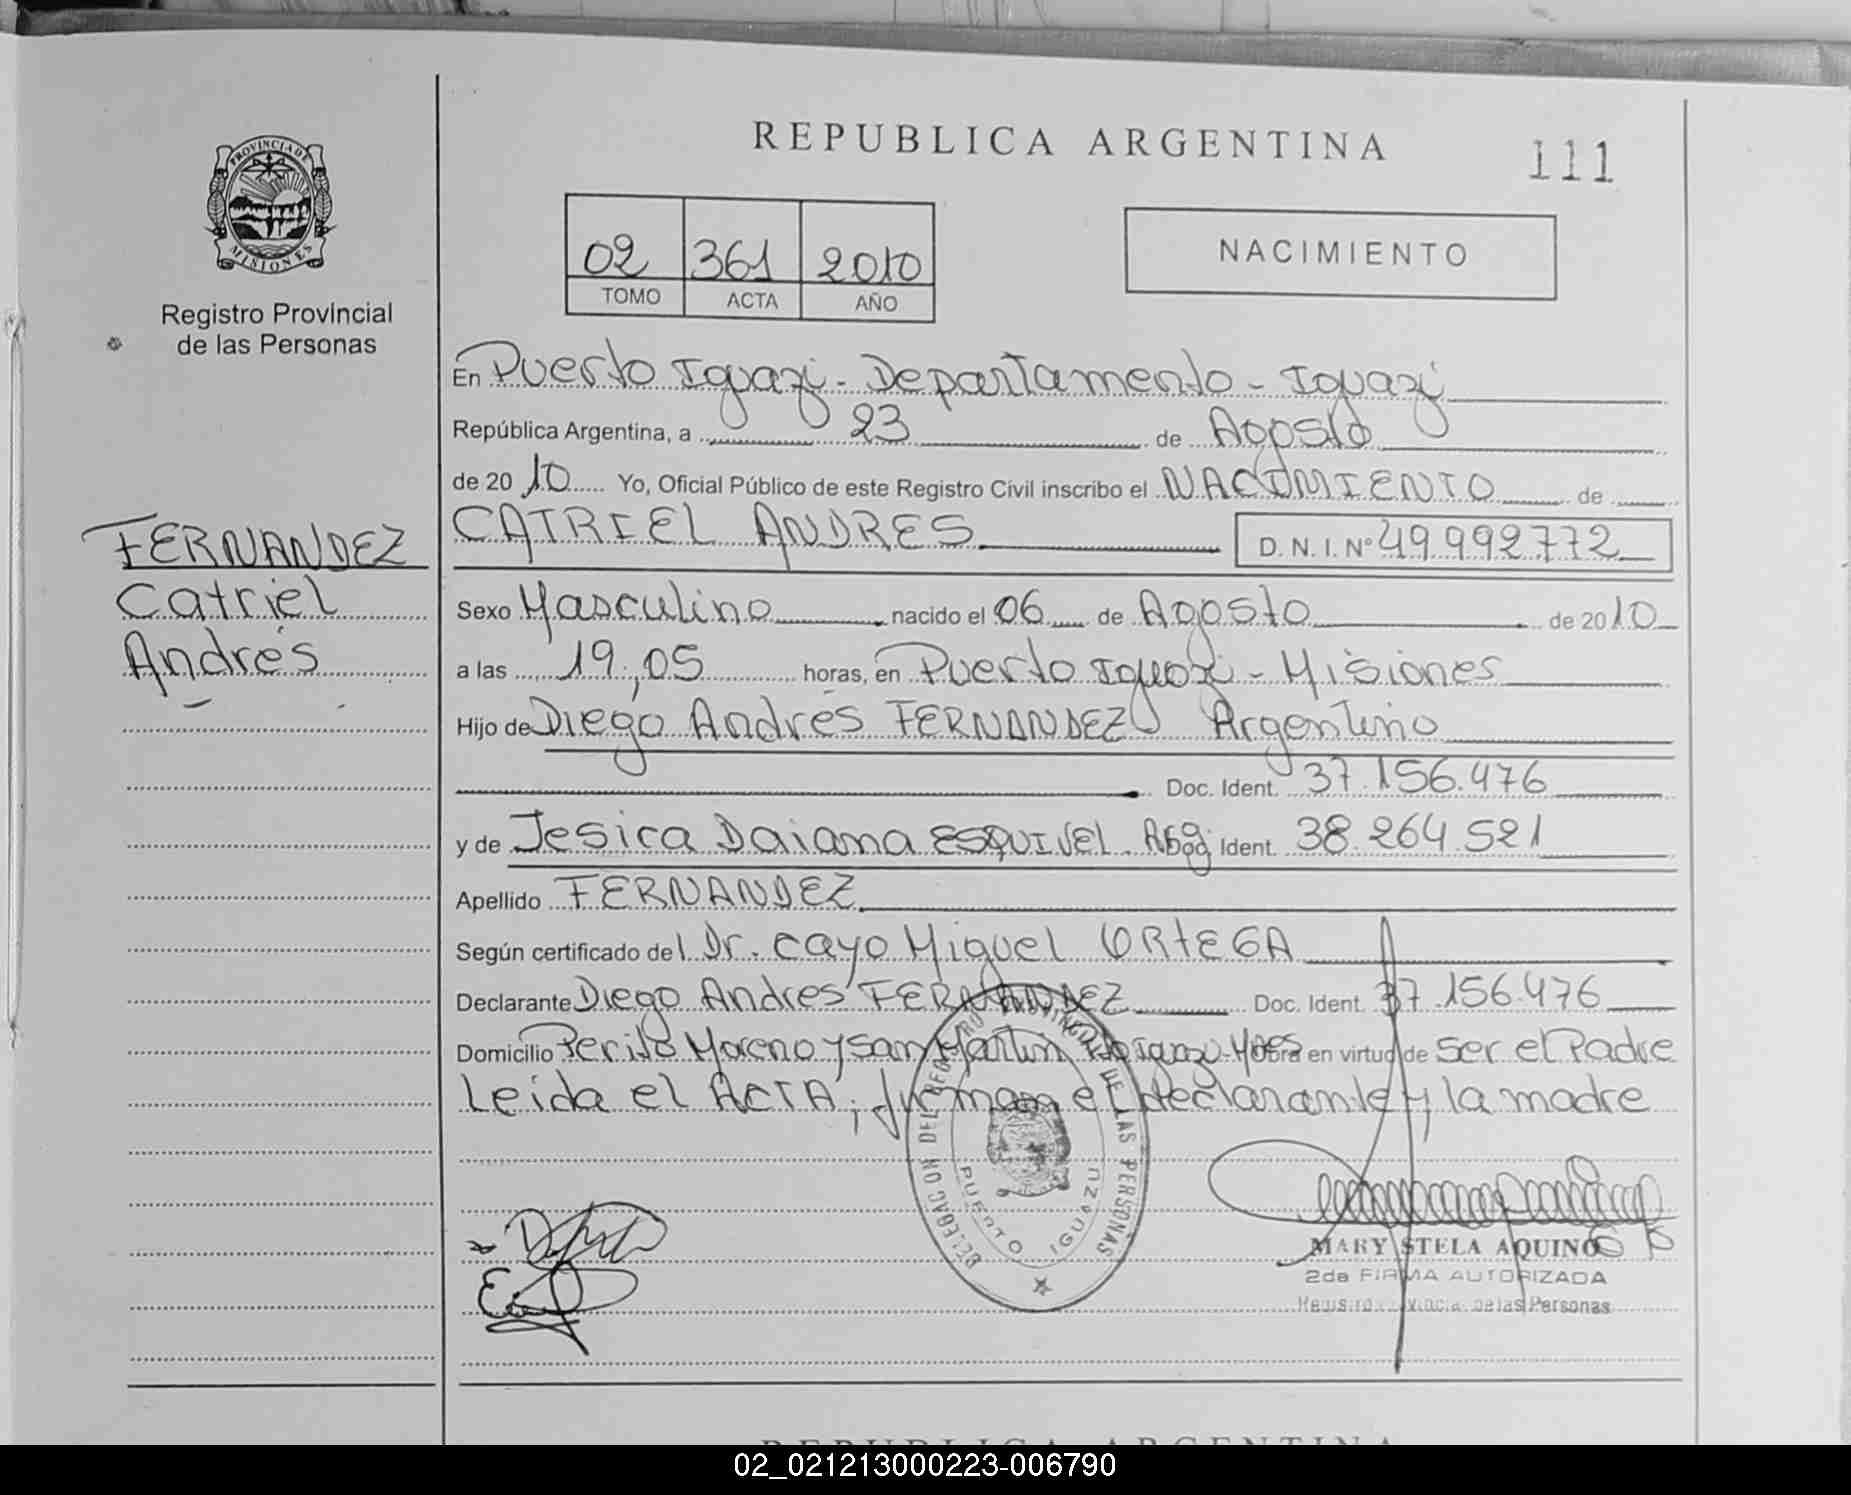 REPUBLICA ARGENTINA
111
PROVINCIA DE
MISIONES
Registro Provincial
de las Personas
02 361 2010
TOMO ACTA AÑO
NACIMIENTO
En Puerto Iguazú - Departamento - Iguazú
República Argentina, a 23 de Agosto
de 2010 Yo, Oficial Público de este Registro Civil inscribo el NACIMIENTO de
FERNANDEZ
Catriel
Andrés
CATRIEL ANDRES D.N.I. Nº 49.992.772
Sexo Masculino nacido el 06 de Agosto de 2010
a las 19,05 horas, en Puerto Iguazú - Misiones
Hijo de Diego Andrés FERNANDEZ Argentino
Doc. Ident. 37.156.476
y de Jesica Daiana ESQUIVEL. Arg. Ident. 38.264.521
Apellido FERNANDEZ
Según certificado del Dr. Cayo Miguel ORTEGA
Declarante Diego Andres FERNANDEZ Doc. Ident. 37.156.476
Domicilio Perito Moreno y San Martin Pto Iguazú-Mnes Obra en virtud de ser el Padre
Leida el ACTA, firman el declarante y la madre
DELEGACION DEL REGISTRO PROVINCIAL DE LAS PERSONAS
PUERTO IGUAZU
MARY STELA AQUINO
2da FIRMA AUTORIZADA
Registro Provincial de las Personas
REPUBLICA ARGENTINA
02_021213000223-006790